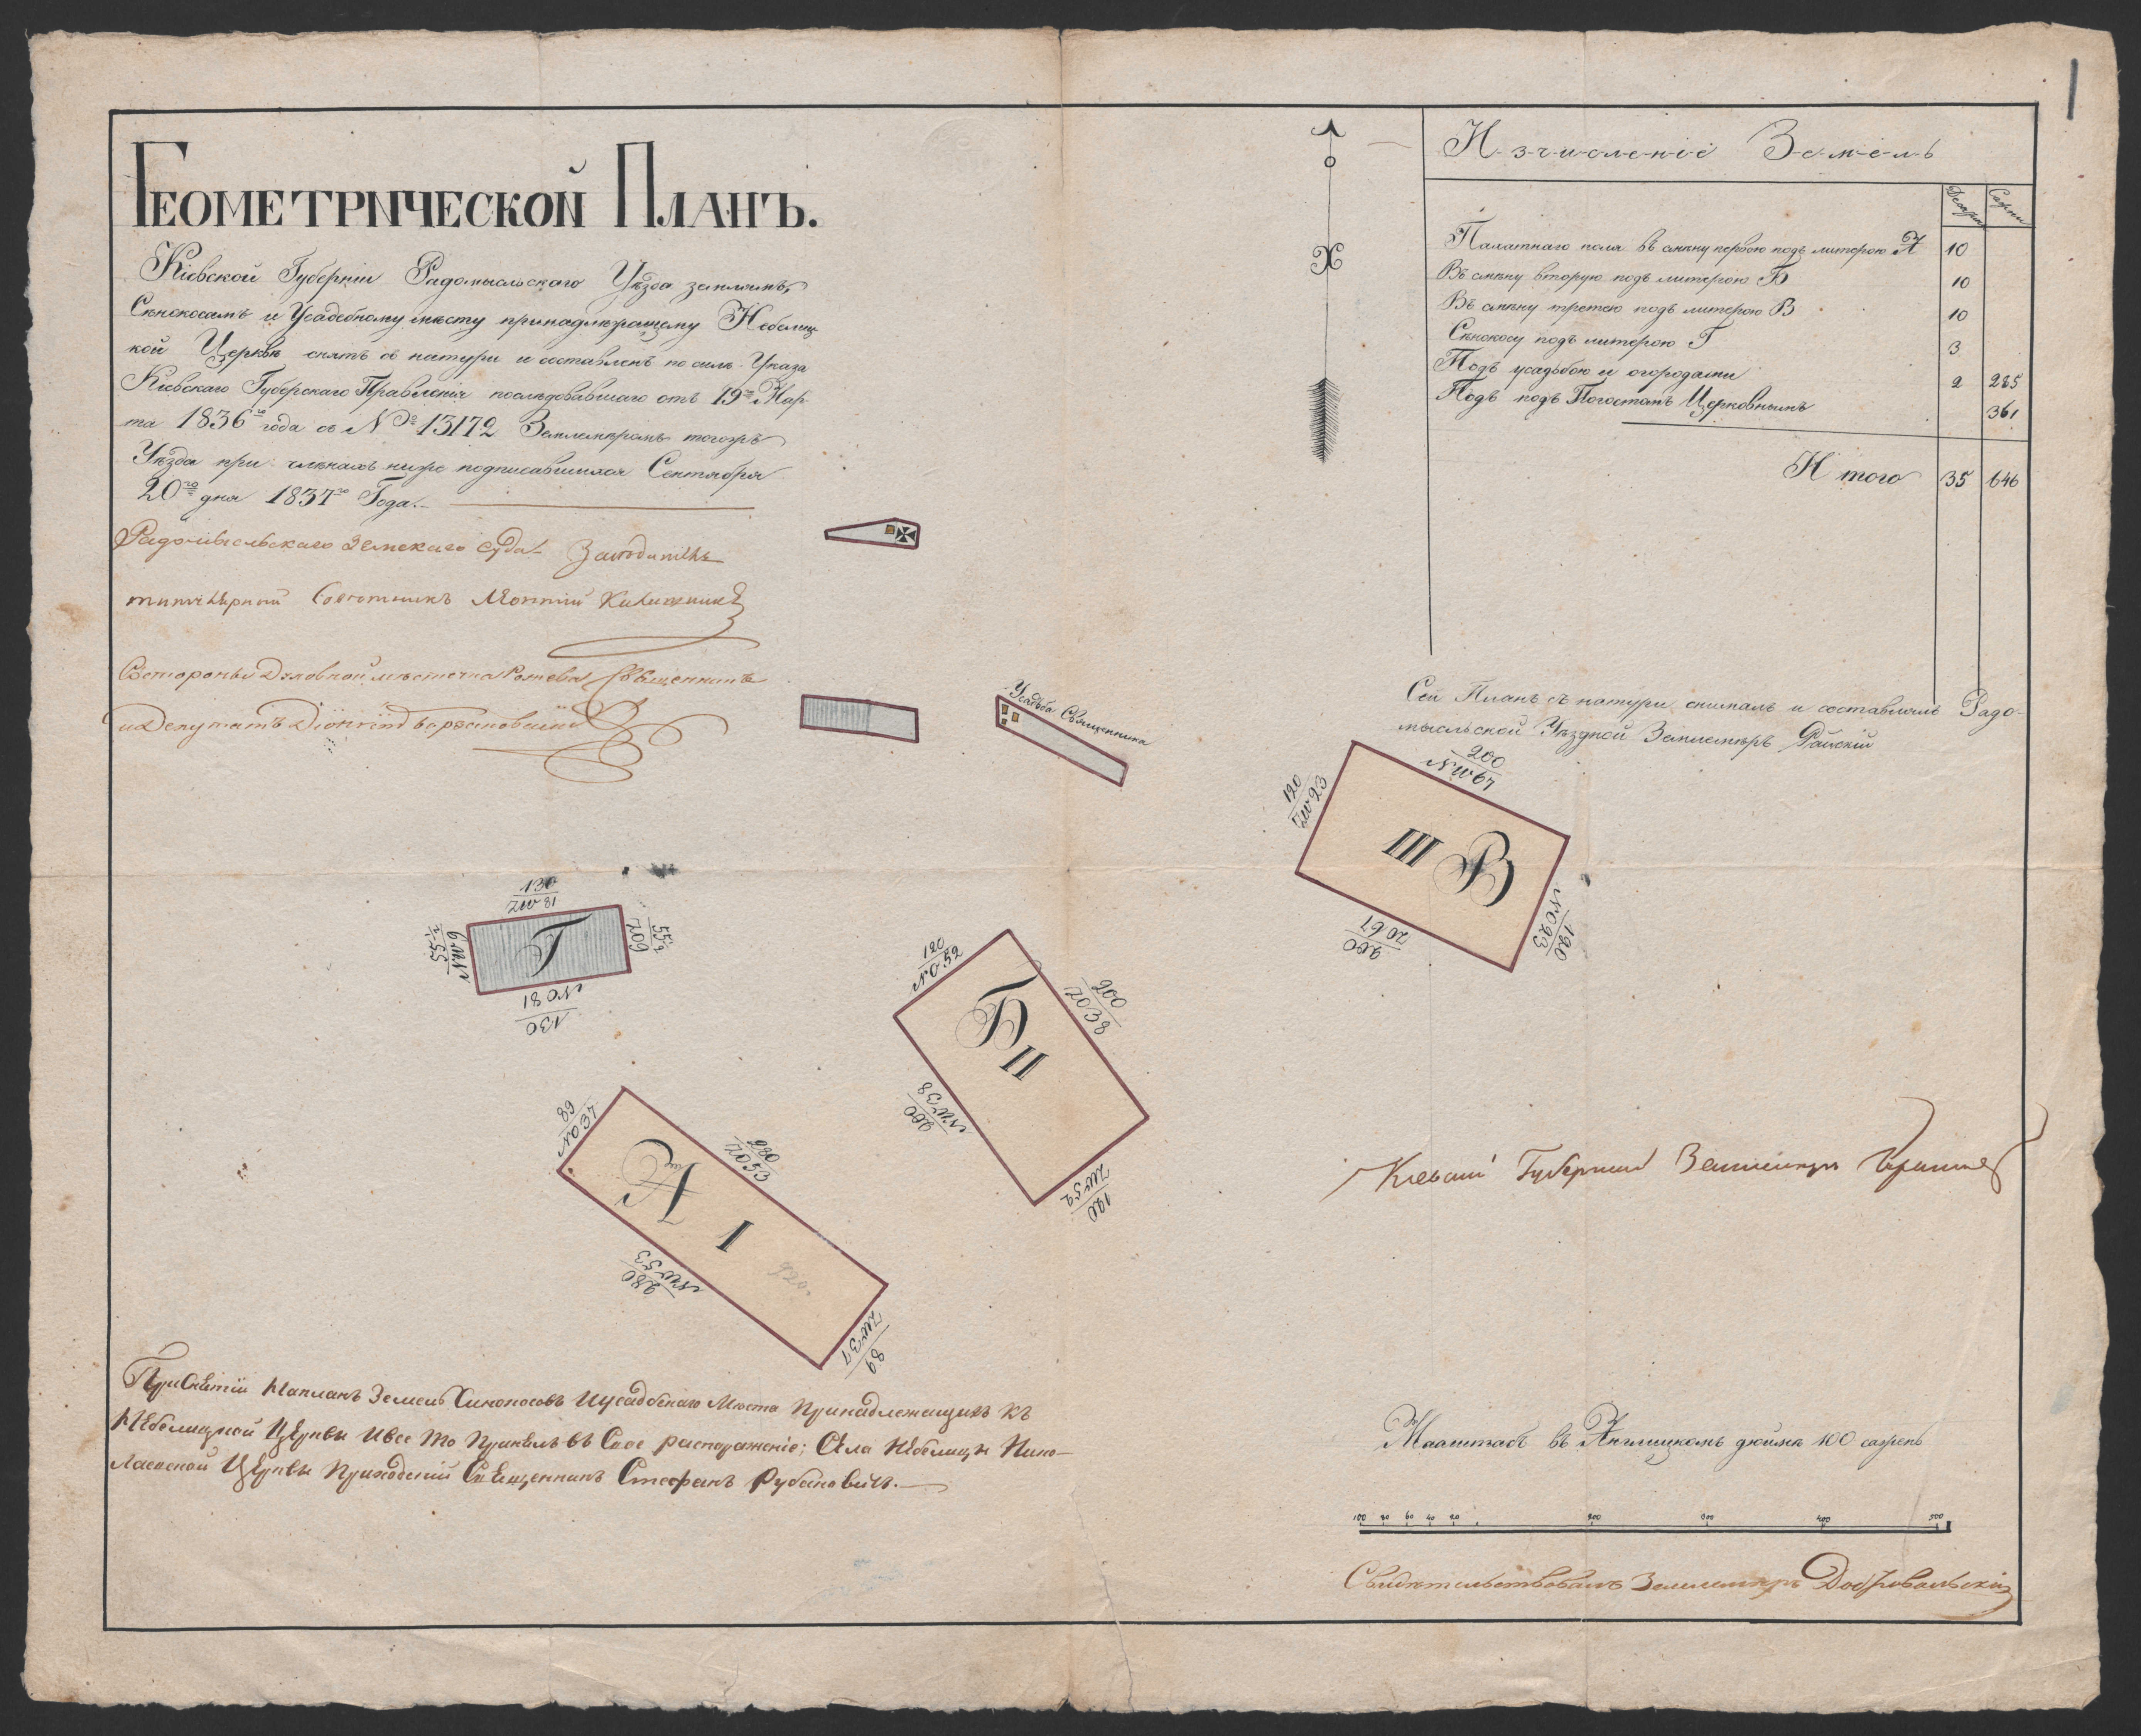 Геометрической Планъ.
Кіевской Губерніи Радомысльскаго Уѣзда землямъ,
Сѣнокосамъ и Усадебному мѣсту принадлежащему Небѣлиц-
кой Церквѣ снятъ съ натури и составленъ по силѣ Указа
Кіевскаго Губерскаго Правленія послѣдовавшаго отъ 19го Мар-
та 1836го года съ № 13172 Землемѣромъ тогожъ
Уѣзда при члѣнахъ ниже подписавшихся Сентября
20го дня 1837го Года.
Радомысльскаго Земскаго Суда Засѣдатель
титулярный Совѣтникъ
Состороны Духовной мѣстечка Рожева Священникъ
и Депутатъ
Изчисленіе Земель
Десят. Сажни
Палатнаго поля въ смѣну первою подъ литерою А 10
Въ смѣну вторую подъ литерою Б 10
Въ смѣну третею подъ литерою В 10
Сѣнокосу подъ литерою Г 3
Подъ усадьбою и огородами 2 285
Подъ подъ Погостомъ Церковнымъ 361
Итого 35 646
Сей Планъ съ натури снималъ и составлялъ Радо-
мысльской Уѣздной Землемѣръ Райскій
Усадьба Священника
200
NW 67
120
ZW 23
III В
120
NO 23
200
ZO 67
130
ZW 81
NW 9
55½
Г
55½
ZO 9
NO 81
130
120
NO 52
200
ZO 38
Б II
200
NW 38
120
ZW 52
89
NO 37
280
ZO 53
А I
920.
280
NW 53
89
ZW 37
Кіевскій Губернскій Землемѣръ
При Снятіи Напланъ Земель Синокосовъ Иусадебнаго Мѣста Принадлежащихъ Къ
Небелицкой Церквы Ивсе То Принялъ Въ Свое распоряженіе; Села Небелицы Нико-
лаевской Церквы Приходскій Священникъ Стефанъ Рубановичъ.
Мааштабъ въ Англицкомъ дюймѣ 100 сажень
100 80 60 40 20 200 300 400 500
Свидѣтельствовалъ Землемѣръ Добровольскій